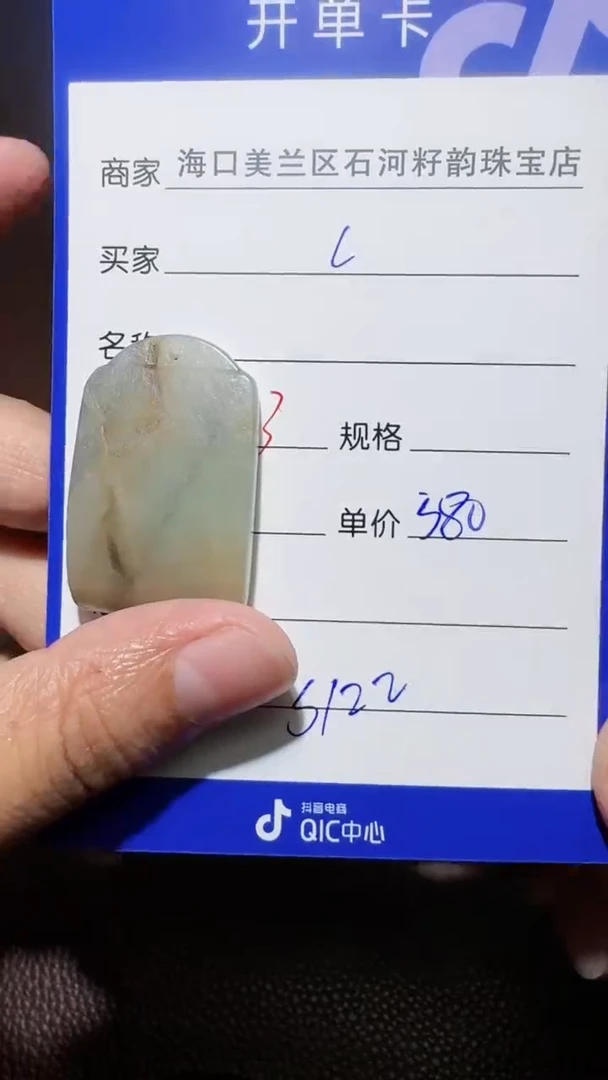 开单卡
商家 海口美兰区石河籽韵珠宝店
买家 L
名称
3 规格
单价 580
5/22
抖音电商
QIC中心